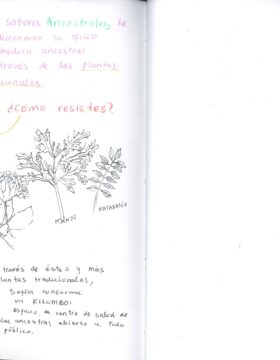 saberes Ancestrales le
su oficio
medico ancestral
través de las plantas
cionales.
¿Cómo resistes?
MATARATÓN
través de éstas y más
lantas tradicionales,
conforma
un KILUMBO:
espacio, ò centro de salud de
ancestral abierto a todo
público.